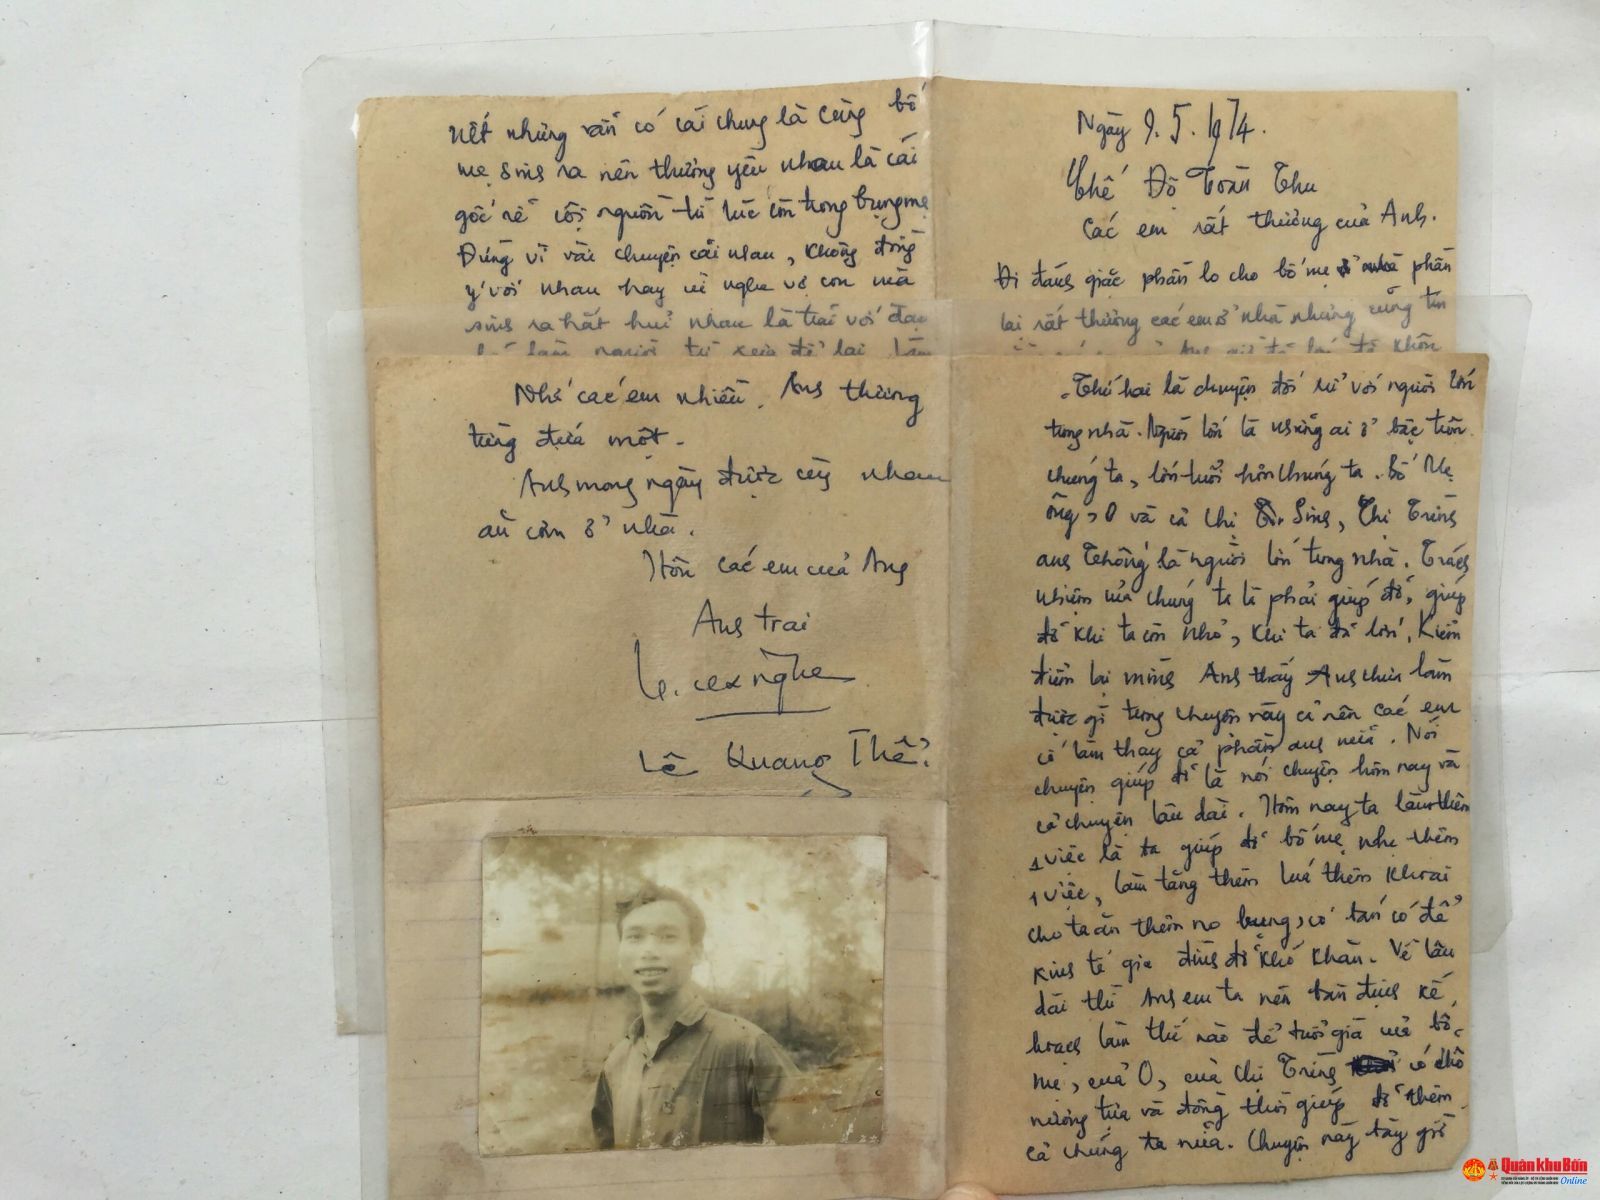 Ngày 9.5.1974.
Thế Độ Toàn Thu
Các em rất thương của Anh.
Đi đánh giặc phần lo cho bố mẹ phần
lại rất thương các em ở nhà nhưng cũng tin
nết nhưng vẫn có cái chung là cùng bố
mẹ sinh ra nên thương yêu nhau là cái
gốc rễ cội nguồn từ lúc còn trong bụng mẹ
Đừng vì vài chuyện cãi nhau, không đồng
ý với nhau hay vì nghe vợ con mà
sinh ra hắt huỉ nhau là trái với đạo
làm người từ xưa để lại
Nhớ các em nhiều. Anh thương
từng đứa một.
Anh mong ngày được cùng nhau
ăn cơm ở nhà.
Hôn các em của Anh
Anh trai
Lê Quang Thể
Thứ hai là chuyện đối xử với người lớn
trong nhà. Người lớn là những ai ở bậc trên
chúng ta, lớn tuổi hơn chúng ta. Bố Mẹ
ông, O và cả chị Sinh, Chị Trình
anh Thông là người lớn trong nhà. Trách
nhiệm của chúng ta là phải giúp đỡ, giúp
đỡ khi ta còn nhỏ, khi ta đã lớn. Kiểm
điểm lại mình Anh thấy Anh chưa làm
được gì trong chuyện này cả nên các em
cố làm thay cả phần anh nữa. Nói
chuyện giúp đỡ là nói chuyện hôm nay và
cả chuyện lâu dài. Hôm nay ta làm thêm
1 việc là ta giúp đỡ bố mẹ nhẹ thêm
1 việc, làm tăng thêm lúa thêm khoai
cho ta ăn thêm no bụng, có bán có để
kinh tế gia đình đỡ khó khăn. Về lâu
dài thì Anh em ta nên bàn định kế
hoạch làm thế nào để tuổi già của bố
mẹ, của O, của chị Trình có chỗ
nương tựa và đồng thời giúp đỡ thêm
cả chúng ta nữa. Chuyện này tày giờ
Quân khu Bốn
Online